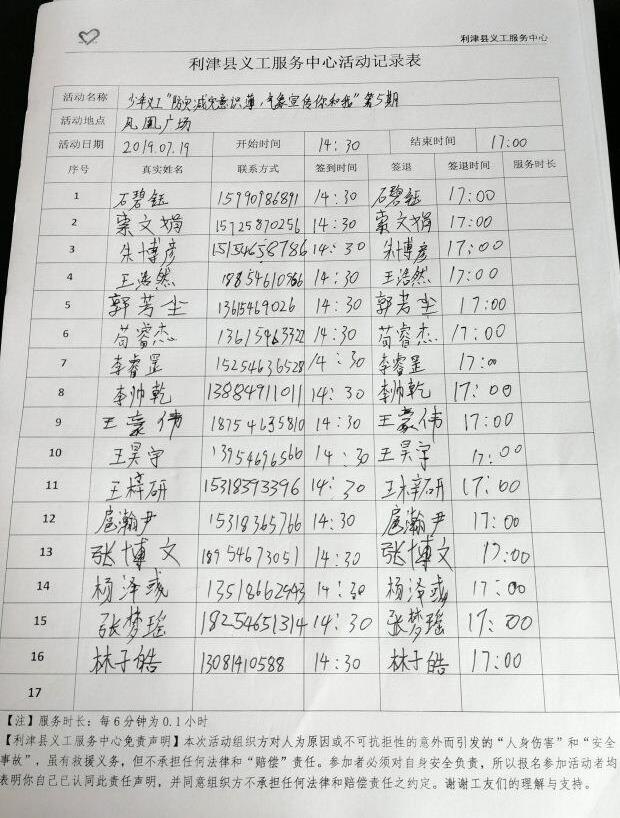 利津县义工服务中心
利津县义工服务中心活动记录表
活动名称 少年义工"防灾减灾意识薄,气象宣传你和我"第5期
活动地点 凤凰广场
活动日期 2019.07.19 开始时间 14:30 结束时间 17:00
序号 真实姓名 联系方式 签到时间 签退 签退时间 服务时长
1 石碧钰 15990986891 14:30 石碧钰 17:00
2 窦文娟 15725870256 14:30 窦文娟 17:00
3 朱博彦 15154658786 14:30 朱博彦 17:00
4 王浩然 14:30 王浩然 17:00
5 郭芳尘 13615469026 14:30 郭芳尘 17:00
6 苟睿杰 13615463322 14:30 苟睿杰 17:00
7 李睿罡 15254636528 14:30 李睿罡 17:00
8 李帅乾 13884911011 14:30 李帅乾 17:00
9 王豪伟 18754635810 14:30 王豪伟 17:00
10 王昊宇 13954696560 14:30 王昊宇 17:00
11 王梓研 15318393396 14:30 王梓研 17:00
12 扈瀚尹 15318365766 14:30 扈瀚尹 17:00
13 张博文 18954673051 14:30 张博文 17:00
14 杨泽彧 14:30 杨泽彧 17:00
15 张梦瑶 18254651314 14:30 张梦瑶 17:00
16 林子皓 13081410588 14:30 林子皓 17:00
17
【注】服务时长:每6分钟为0.1小时
【利津县义工服务中心免责声明】本次活动组织方对人为原因或不可抗拒性的意外而引发的"人身伤害"和"安全
事故",虽有救援义务,但不承担任何法律和"赔偿"责任。参加者必须对自身安全负责,所以报名参加活动者均
表明你自己已认同此责任声明,并同意组织方不承担任何法律和赔偿责任之约定。谢谢工友们的理解与支持。